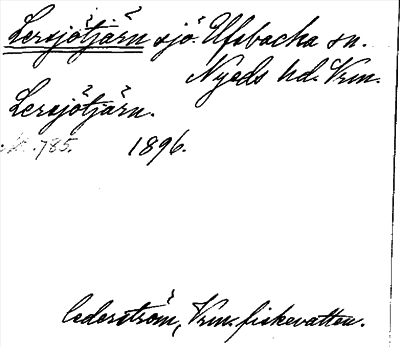 Lersjötjärn sjö. Ulvsbacka sn.
Nyeds hd. Vrm.
Lersjötjärn.
785. 1896.
Cederström, Vrm. fiskevatten.